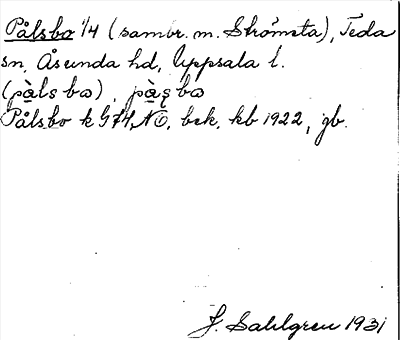 Pålsbo 1/4 (sambr. m. Strömsta), Teda
sn, Åsunda hd, Uppsala l.
(pàls bω), pàꞩbω
Pålsbo k G74 NO, bek. kb 1922, gb.
J. Sahlgren 1931